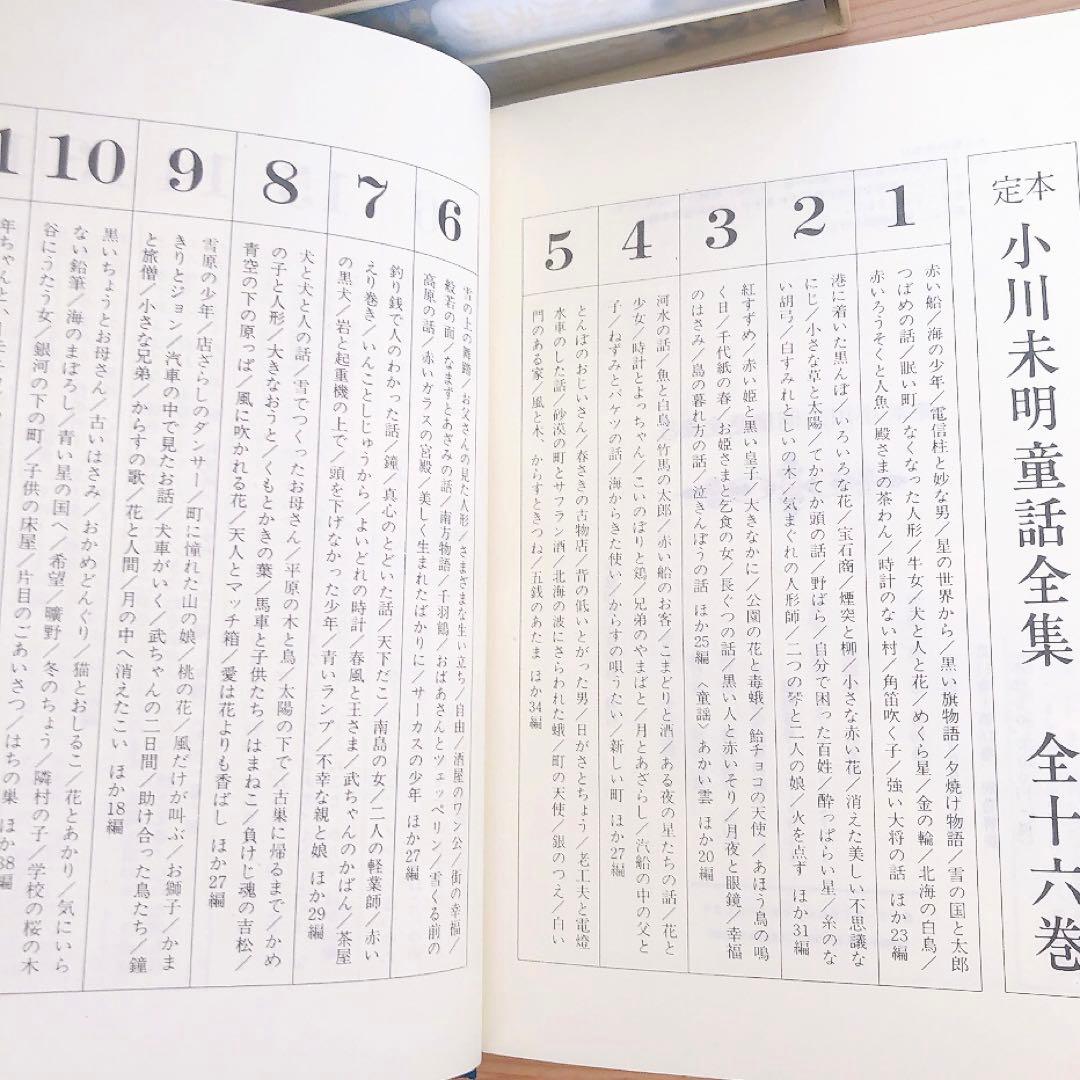 定本 小川未明童話全集 全十六巻
1
赤い船/海の少年/電信柱と妙な男/星の世界から/黒い旗物語/夕焼け物語/雪の国と太郎
つばめの話/眠い町/なくなった人形/牛女/犬と人と花/めくら星/金の輪/北海の白鳥/
赤いろうそくと人魚/殿さまの茶わん/時計のない村/角笛吹く子/強い大将の話 ほか23編
2
港に着いた黒んぼ/いろいろな花/宝石商/煙突と柳/小さな赤い花/消えた美しい不思議な
にじ/小さな草と太陽/てかてか頭の話/野ばら/自分で困った百姓/酔っぱらい星/糸のな
い胡弓/白すみれとしいの木/気まぐれの人形師/二つの琴と二人の娘/火を点ず ほか31編
3
紅すずめ/赤い姫と黒い皇子/大きなかに/公園の花と毒蛾/飴チョコの天使/あほう鳥の鳴
く日/千代紙の春/お姫さまと乞食の女/長ぐつの話/黒い人と赤いそり/月夜と眼鏡/幸福
のはさみ/島の暮れ方の話/泣きんぼうの話 ほか25編 〈童謡〉あかい雲 ほか20編
4
河水の話/魚と白鳥/竹馬の太郎/赤い船のお客/こまどりと酒/ある夜の星たちの話/花と
少女/時計とよっちゃん/こいのぼりと鶏/兄弟のやまばと/月とあざらし/汽船の中の父と
子/ねずみとバケツの話/海からきた使い/からすの唄うたい/新しい町 ほか27編
5
とんぼのおじいさん/春さきの古物店/背の低いとがった男/日がさとちょう/老工夫と電燈
水車のした話/砂漠の町とサフラン酒/北海の波にさらわれた蛾/町の天使/銀のつえ/白い
門のある家/風と木、からすときつね/五銭のあたま ほか34編
6
雪の上の舞踏/お父さんの見た人形/さまざまな生い立ち/自由/酒屋のワン公/街の幸福/
般若の面/なまずとあざみの話/南方物語/千羽鶴/おばあさんとツェッペリン/雪くる前の
高原の話/赤いガラスの宮殿/美しく生まれたばかりに/サーカスの少年 ほか27編
7
釣り銭で人のわかった話/鐘/真心のとどいた話/天下だこ/南島の女/二人の軽業師/赤い
えり巻き/いんことしじゅうから/よいどれの時計/春風と王さま/武ちゃんのかばん/茶屋
の黒犬/岩と起重機の上で/頭を下げなかった少年/青いランプ/不幸な親と娘 ほか29編
8
犬と犬と人の話/雪でつくったお母さん/平原の木と鳥/太陽の下で/古巣に帰るまで/かめ
の子と人形/大きなおうと/くもとかきの葉/馬車と子供たち/はまねこ/負けじ魂の吉松/
青空の下の原っぱ/風に吹かれる花/天人とマッチ箱/愛は花よりも香ばし ほか27編
9
雪原の少年/店ざらしのダンサー/町に憧れた山の娘/桃の花/風だけが叫ぶ/お獅子/かま
きりとジョン/汽車の中で見たお話/犬車がいく/武ちゃんの二日間/助け合った鳥たち/鐘
と旅僧/小さな兄弟/からすの歌/花と人間/月の中へ消えたこい ほか18編
10
黒いちょうとお母さん/古いはさみ/おかめどんぐり/猫とおしるこ/花とあかり/気にいら
ない鉛筆/海のまぼろし/青い星の国へ/希望/曠野/冬のちょう/隣村の子/学校の桜の木
谷にうたう女/銀河の下の町/子供の床屋/片目のごあいさつ/はちの巣 ほか38編